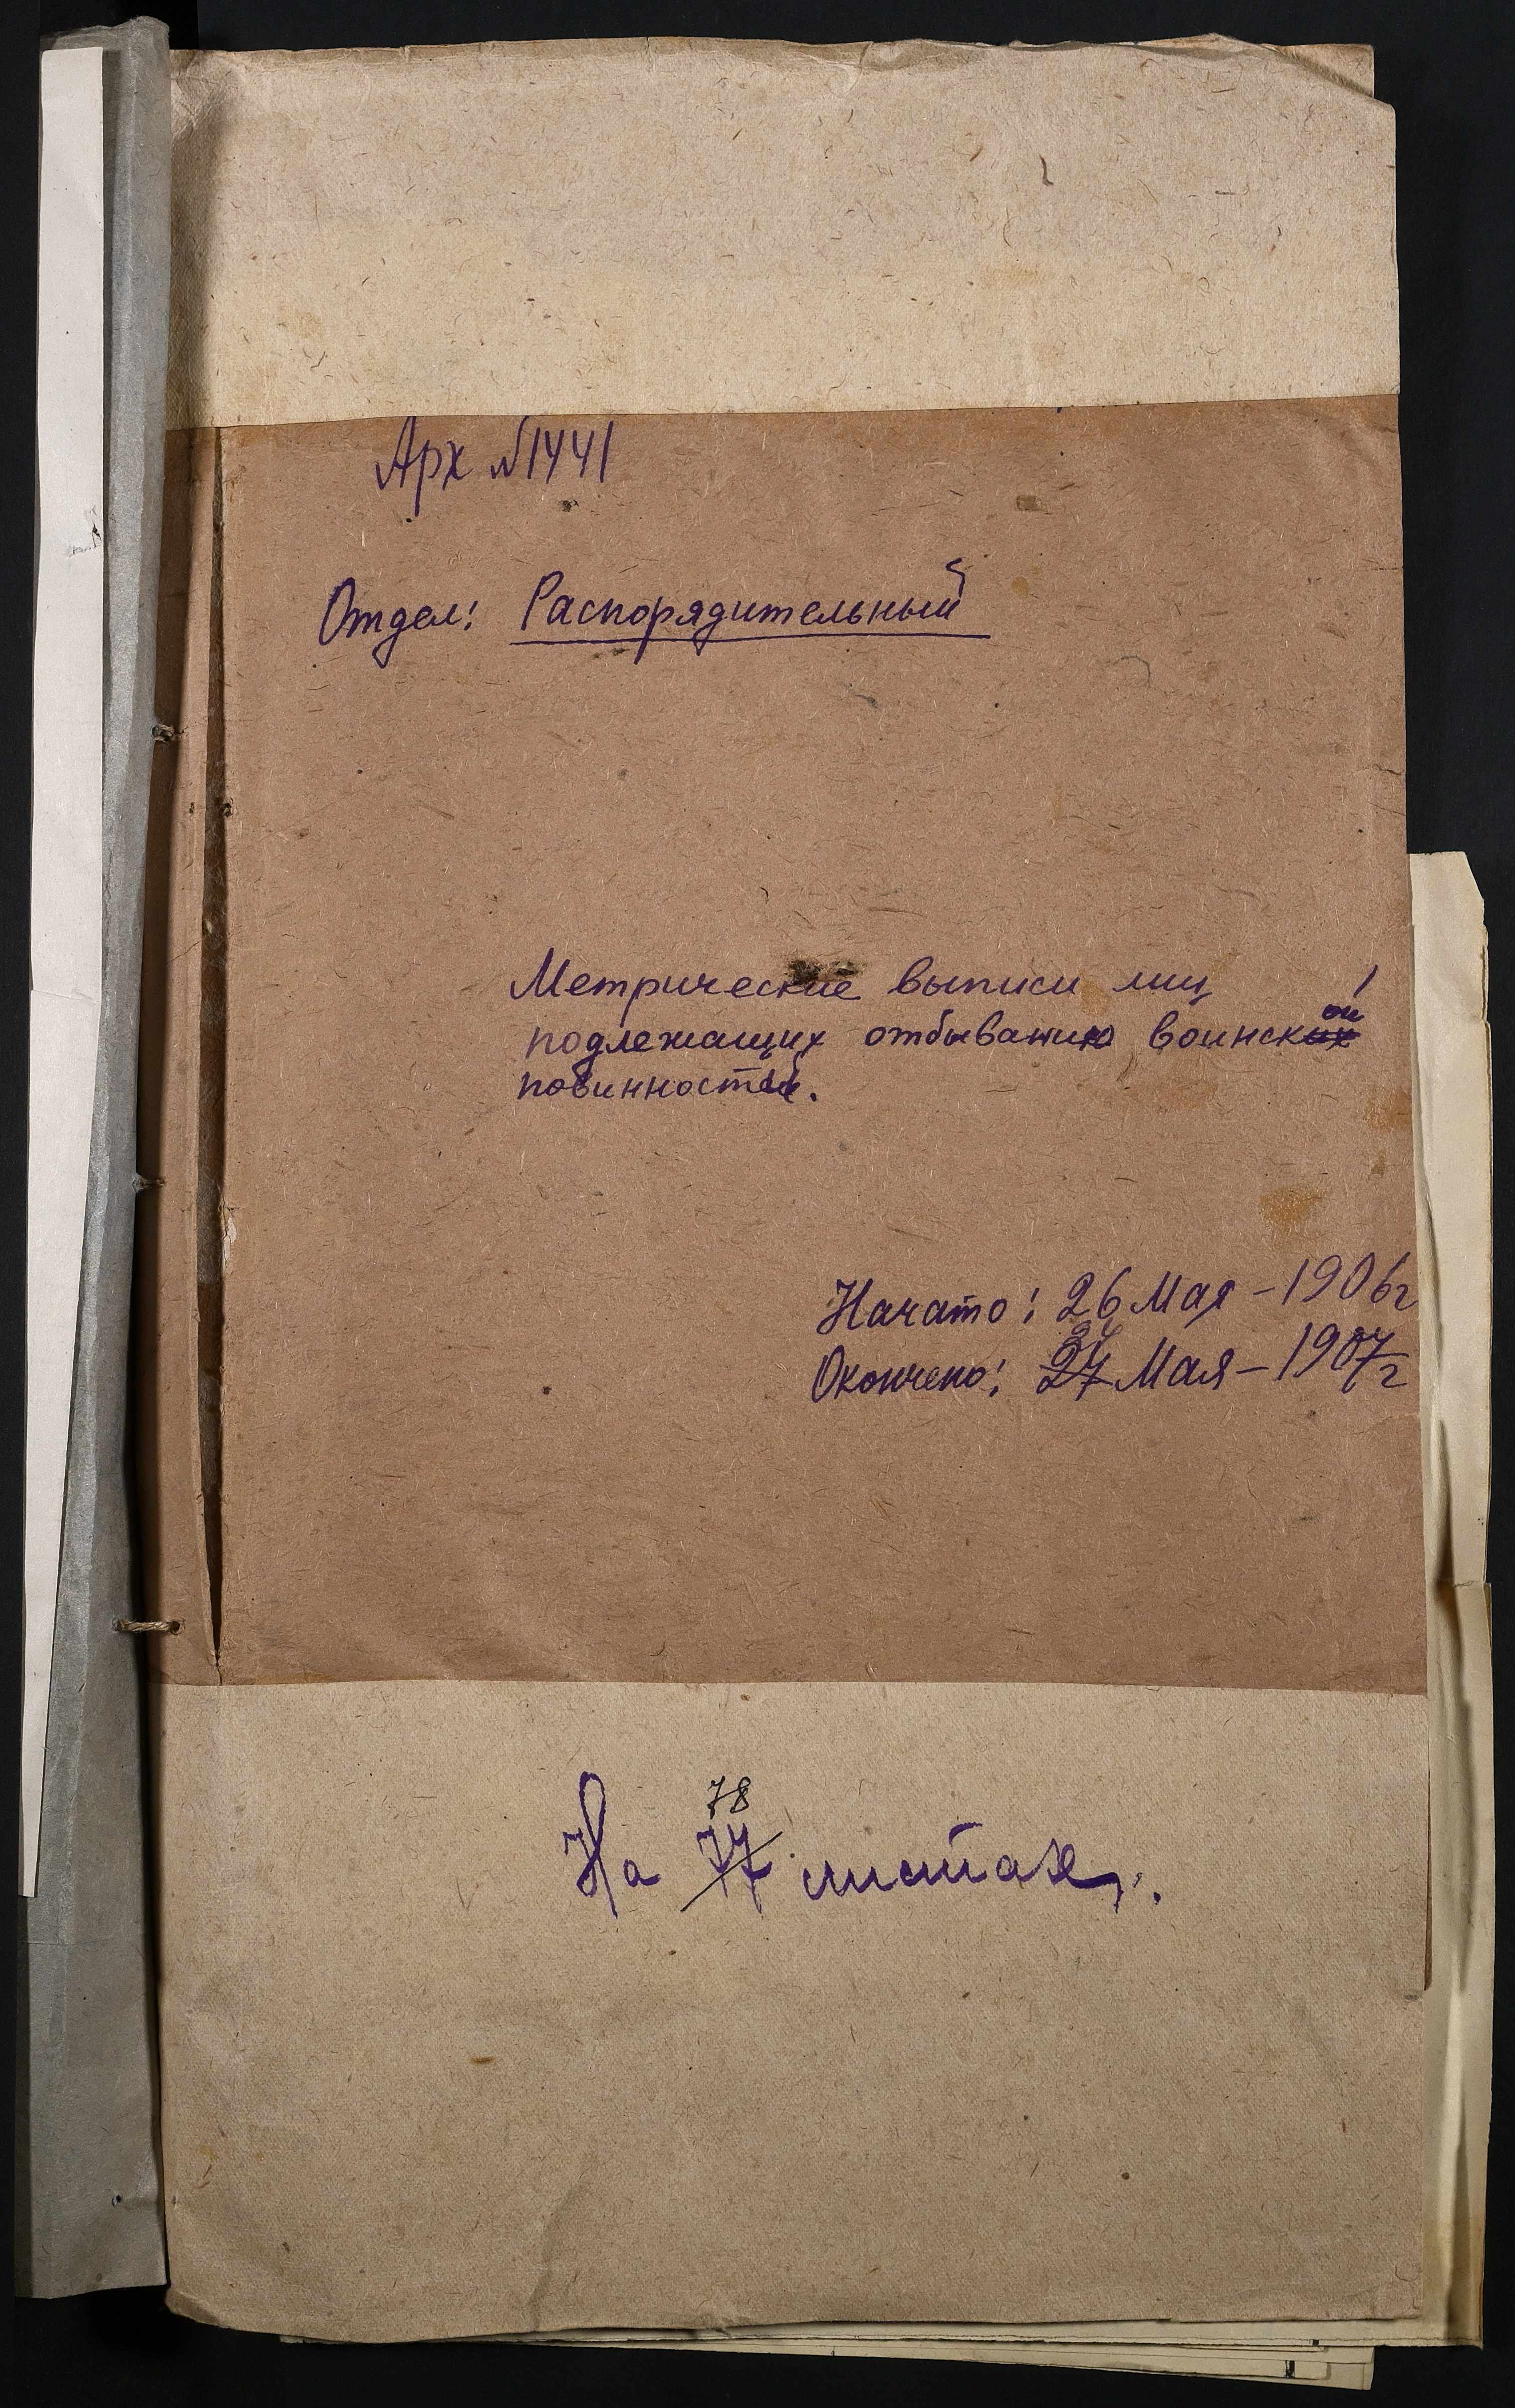 Арх №1441
Отдел: Распорядительный
Метрические выписи лиц
подлежащих отбыванию воинской
повинности.
Начато: 26 Мая - 1906 г
Окончено: Мая - 1907 г
78
На 77 листах.